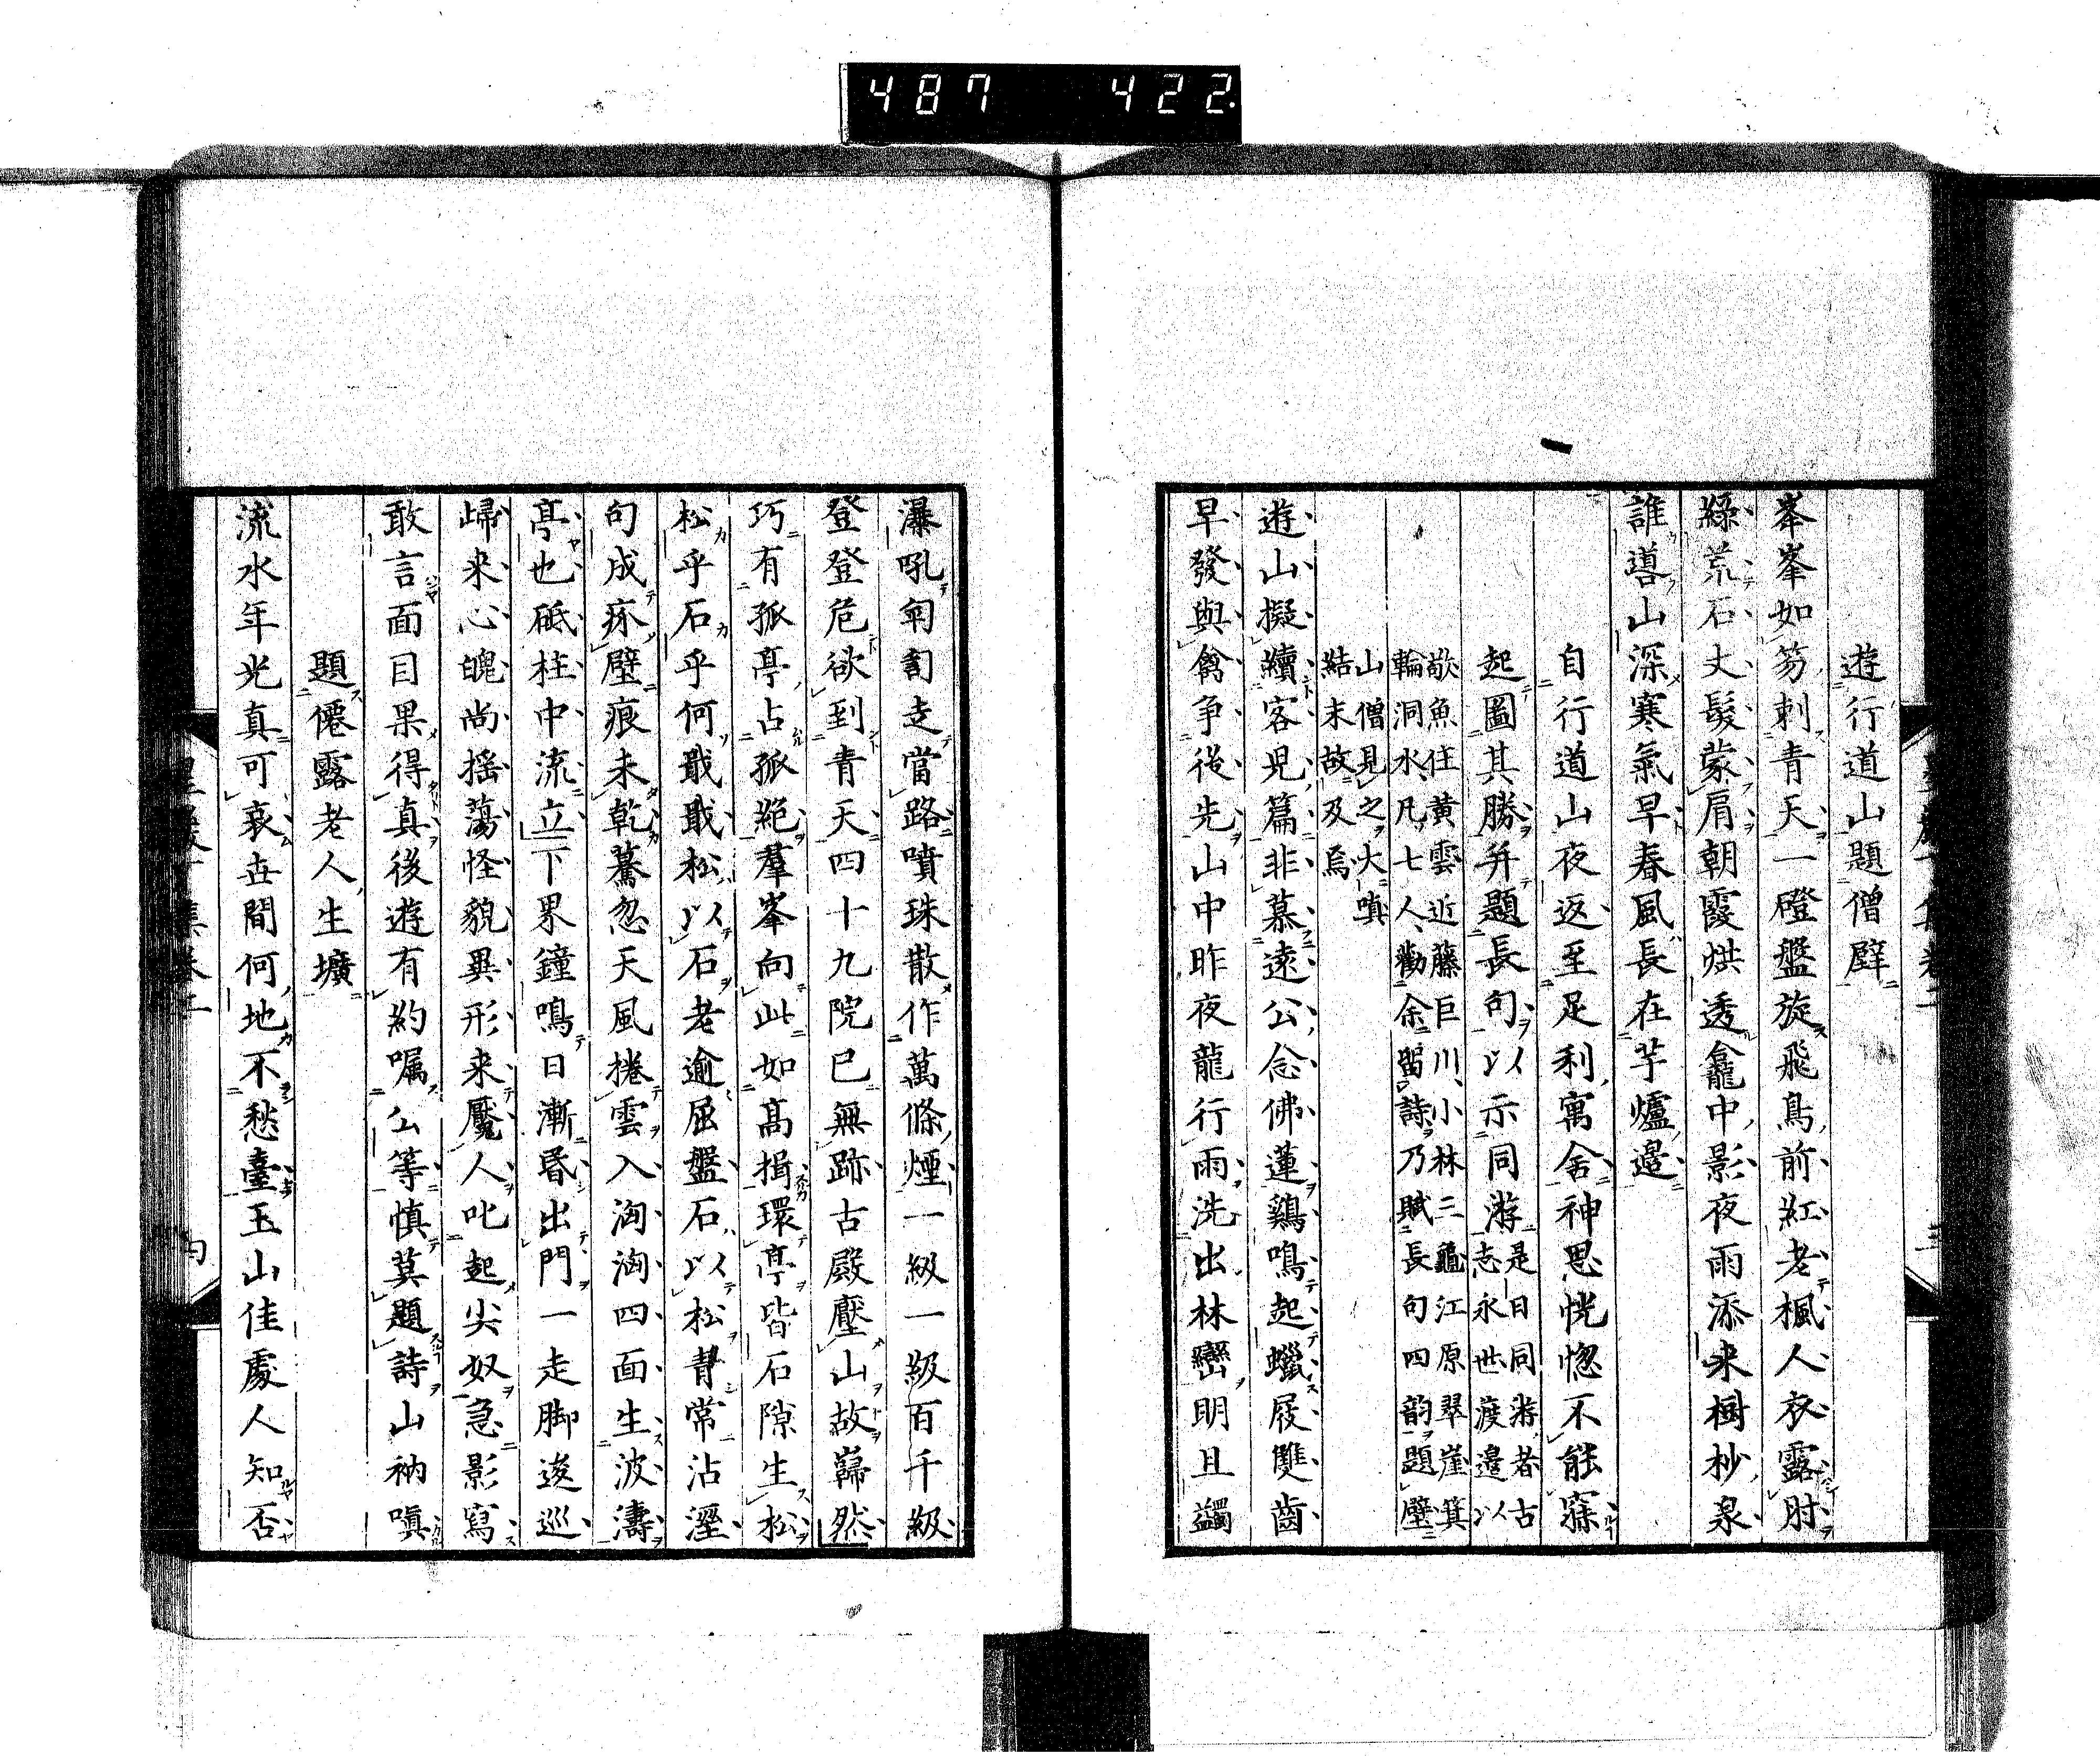 487 422
遊行道山題僧壁
峯峯如笏刺青天一磴盤旋飛鳥前紅老楓人衣露肘
緑荒石丈髮蒙肩朝霞烘透龕中影夜雨添来樹杪泉
誰噵山深寒氣早春風長在芋爐邊
自行道山夜返至足利寓舍神思恍惚不能寐
起圖其勝并題長句以示同游是日同游者古
志永世渡邉以
歇魚住黄雲近藤巨川小林三龜江原翠崖箕
輪洞水凡七人勸余留詩乃賦長句四韵題壁
山僧見之大嗔
結末故及焉
遊山擬續客兒篇非慕遠公念佛蓮鷄鳴起蠟屐雙齒
早發與禽争後先山中昨夜龍行雨洗出林巒明且蠲
瀑吼匉訇走當路噴珠散作萬條煙一級一級百千級
登登危欲到青天四十九院已無跡古殿壓山故巋然
巧有孤亭占孤絶羣峯向此如髙揖環亭皆石隙生松
松乎石乎何戢戢松以石老逾屈盤石以松青常沾溼
句成疥壁痕未乾驀忽天風捲雲入洶洶四面生波濤
亭也砥柱中流立下界鐘鳴日漸昏出門一走脚逡巡
歸来心魄尚揺蕩怪貌異形来魘人叱起尖奴急影寫
敢言面目果得真後遊有約嘱厶等慎莫題詩山衲嗔
題僊露老人生壙
流水年光真可哀世間何地不愁臺玉山佳處人知否